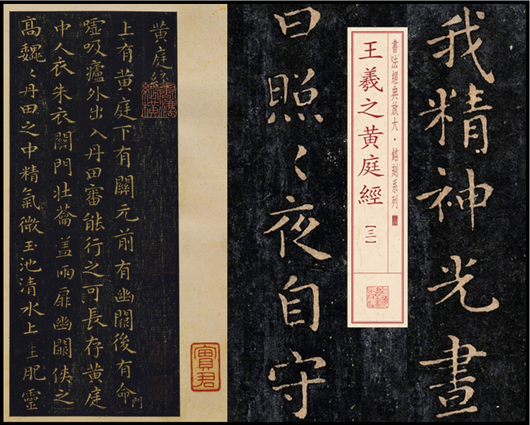 我精神光晝
書法經典放大·銘刻系列
王羲之黃庭經【三】
日照〻夜自守
黃庭經
上有黃庭下有關元前有幽闕後有命門
噓吸廬外出入丹田審能行之可長存黃庭
中人衣朱衣關門壯蘥蓋兩扉幽闕俠之
高巍〻丹田之中精氣微玉池清水上生肥靈